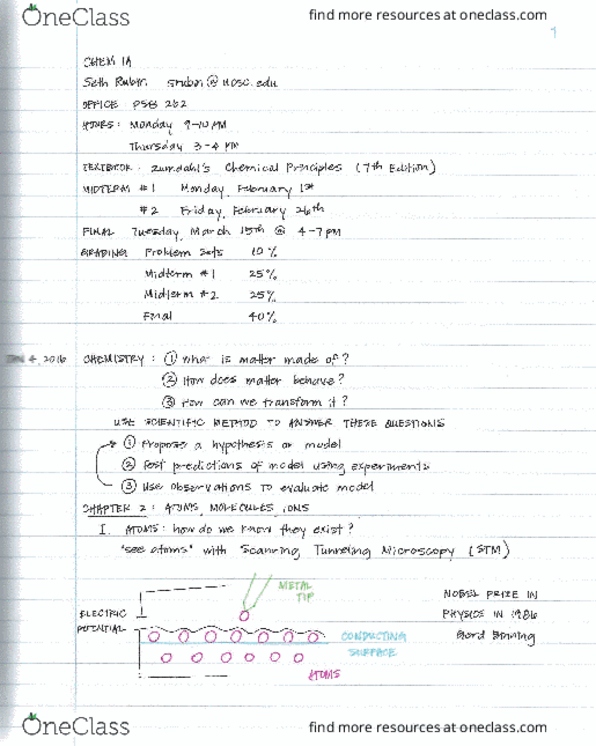 OneClass
find more resources at oneclass.com
1
CHEM 1A
Seth Rubin srubin@ucsc.edu
OFFICE PSB 262
HOURS: Monday 9-10 AM
Thursday 3-4 PM
TEXTBOOK: Zumdahl's Chemical Principles (7th Edition)
MIDTERM #1 Monday, February 1st
#2 Friday, February 26th
FINAL Tuesday, March 15th @ 4-7pm
GRADING Problem Sets 10%
Midterm #1 25%
Midterm #2 25%
Final 40%
JAN 4, 2016 CHEMISTRY: ① What is matter made of?
② How does matter behave?
③ How can we transform it?
USE SCIENTIFIC METHOD TO ANSWER THESE QUESTIONS
① Propose a hypothesis or model
② Test predictions of model using experiments
③ Use observations to evaluate model
CHAPTER 2: ATOMS, MOLECULES, IONS
I. ATOMS: how do we know they exist?
"see atoms" with Scanning Tunneling Microscopy (STM)
METAL
TIP
ELECTRIC
POTENTIAL
CONDUCTING
SURFACE
ATOMS
NOBEL PRIZE IN
PHYSICS IN 1986
Gerd Binning
OneClass
find more resources at oneclass.com